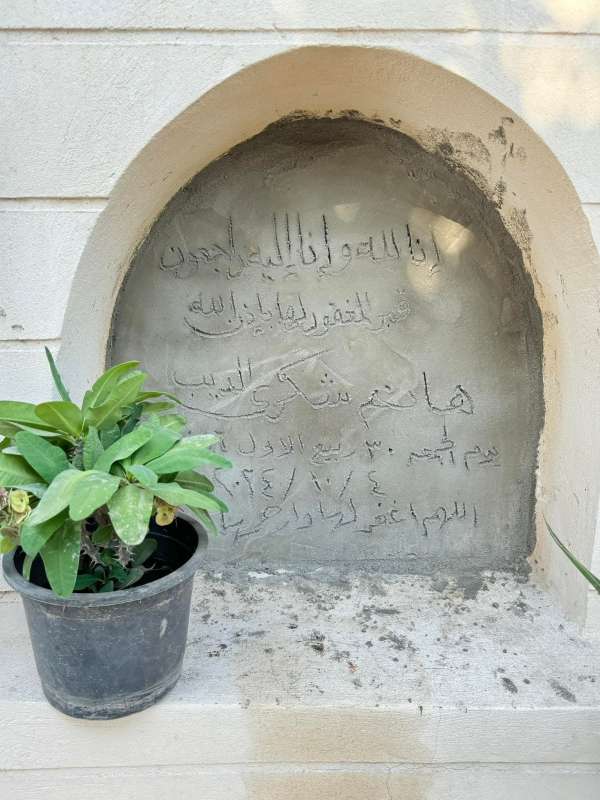 إنا لله وإنا إليه راجعون
قبر المغفور لها بإذن الله
هانم شكرى الديب
يوم الجمعه ٣٠ ربيع الاول
٢٠٢٤/١٠/٤
اللهم اغفر لها وارحمها